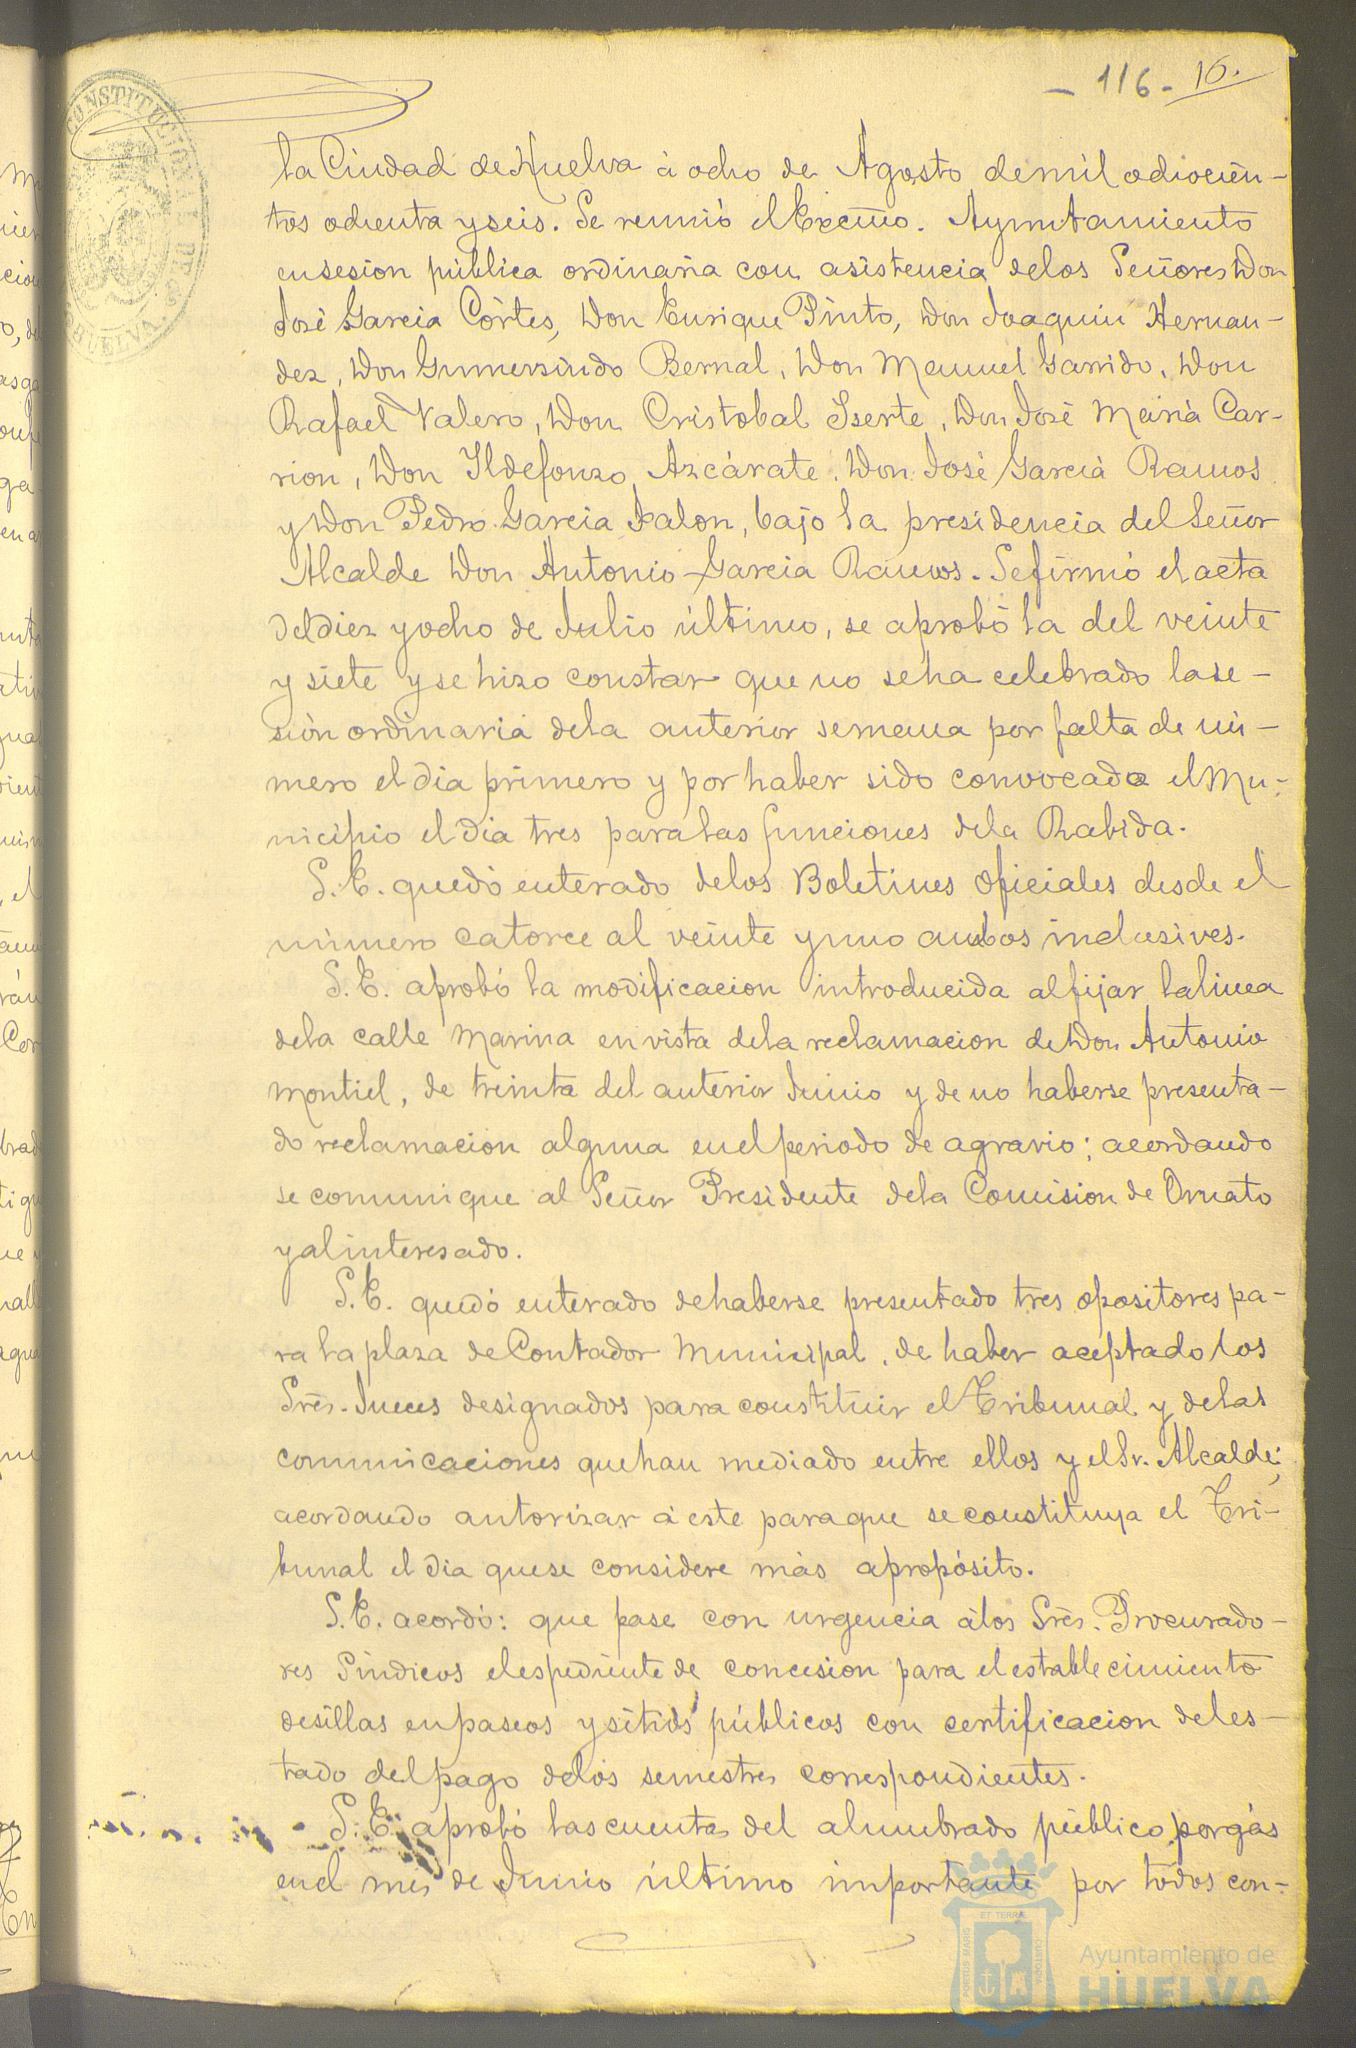 - 116 - 16.
CONSTITUCIONAL DE
HUELVA.
la Ciudad de Huelva á ocho de Agosto de mil ochocien-
tos ochenta y seis. Se reunió el Excmo. Ayuntamiento
en sesion pública ordinaria con asistencia de los Señores Don
José Garcia Córtes, Don Enrique Pinto, Don Joaquin Hernan-
dez, Don Gumersindo Bernal, Don Manuel Garrido, Don
Rafael Valero, Don Cristobal Iserte, Don José Maria Car-
rion, Don Ildefonzo Azcárate, Don José Garcia Ramos
y Don Pedro Garcia Jalon, bajo la presidencia del Señor
Alcalde Don Antonio Garcia Ramos. Se firmó el acta
del diez y ocho de Julio último, se aprobó la del veinte
y siete y se hizo constar que no se ha celebrado la se-
sion ordinaria de la anterior semana por falta de nú-
mero el dia primero y por haber sido convocado el Mu-
nicipio el dia tres para las funciones de la Rabida.
S. E. quedó enterado de los Boletines Oficiales desde el
número catorce al veinte y uno ambos inclusives.
S. E. aprobó la modificacion introducida al fijar la linea
de la calle Marina en vista de la reclamacion de Don Antonio
Montiel, de treinta del anterior Junio y de no haberse presenta-
do reclamacion alguna en el periodo de agravio; acordando
se comunique al Señor Presidente de la Comision de Ornato
y al interesado.
S. E. quedó enterado de haberse presentado tres opositores pa-
ra la plaza de Contador Municipal, de haber aceptado los
Srés. Jueces designados para constituir el Tribunal y de las
comunicaciones que han mediado entre ellos y el Sr. Alcalde;
acordando autorizar á este para que se constituya el Tri-
bunal el dia que se considere más apropósito.
S. E. acordó: que pase con urgencia á los Srés. Procurado-
res Síndicos el espediente de concesion para el establecimiento
de sillas en paseos y sitios públicos con certificacion del es-
tado del pago de los semestres correspondientes.
S. E. aprobó las cuentas del alumbrado público por gás
en el mes de Junio último importante por todos con-
PORTUS MARIS
ET TERRÆ
CUSTODIA
Ayuntamiento de
HUELVA